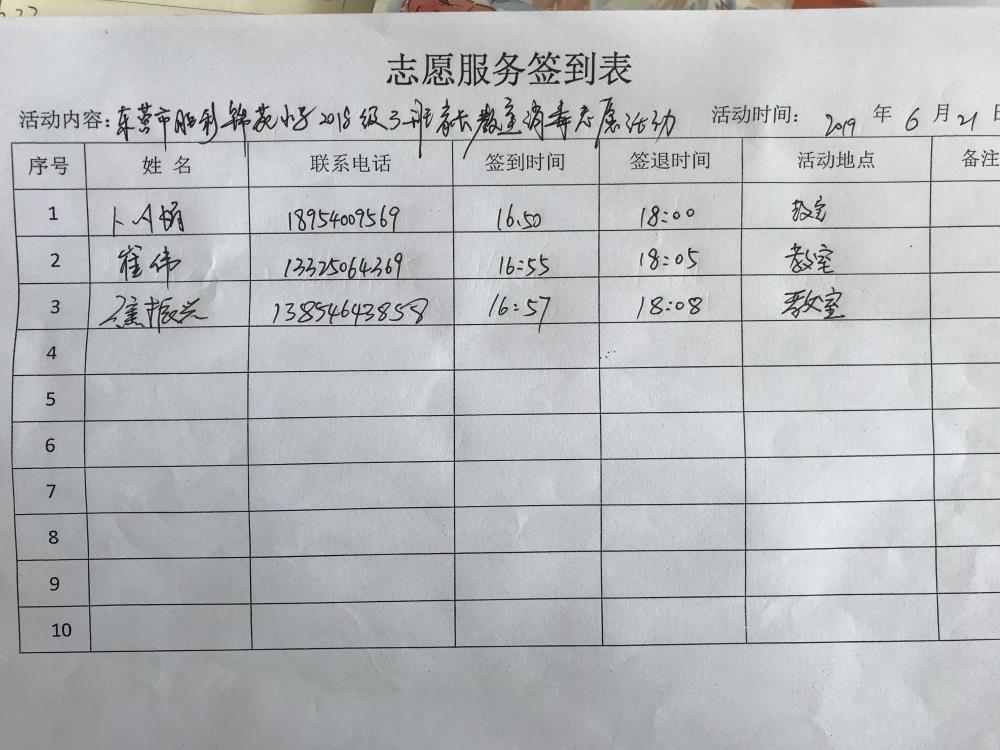 志愿服务签到表
活动内容: 东营市胜利锦苑小学2018级3班家长教室消毒志愿活动 活动时间: 2019 年 6 月 21 日
序号 姓 名 联系电话 签到时间 签退时间 活动地点 备注
1 18954009569 16.50 18:00 教室
2 崔伟 13325064369 16:55 18:05 教室
3 焦振兴 13854643858 16:57 18:08 教室
4
5
6
7
8
9
10